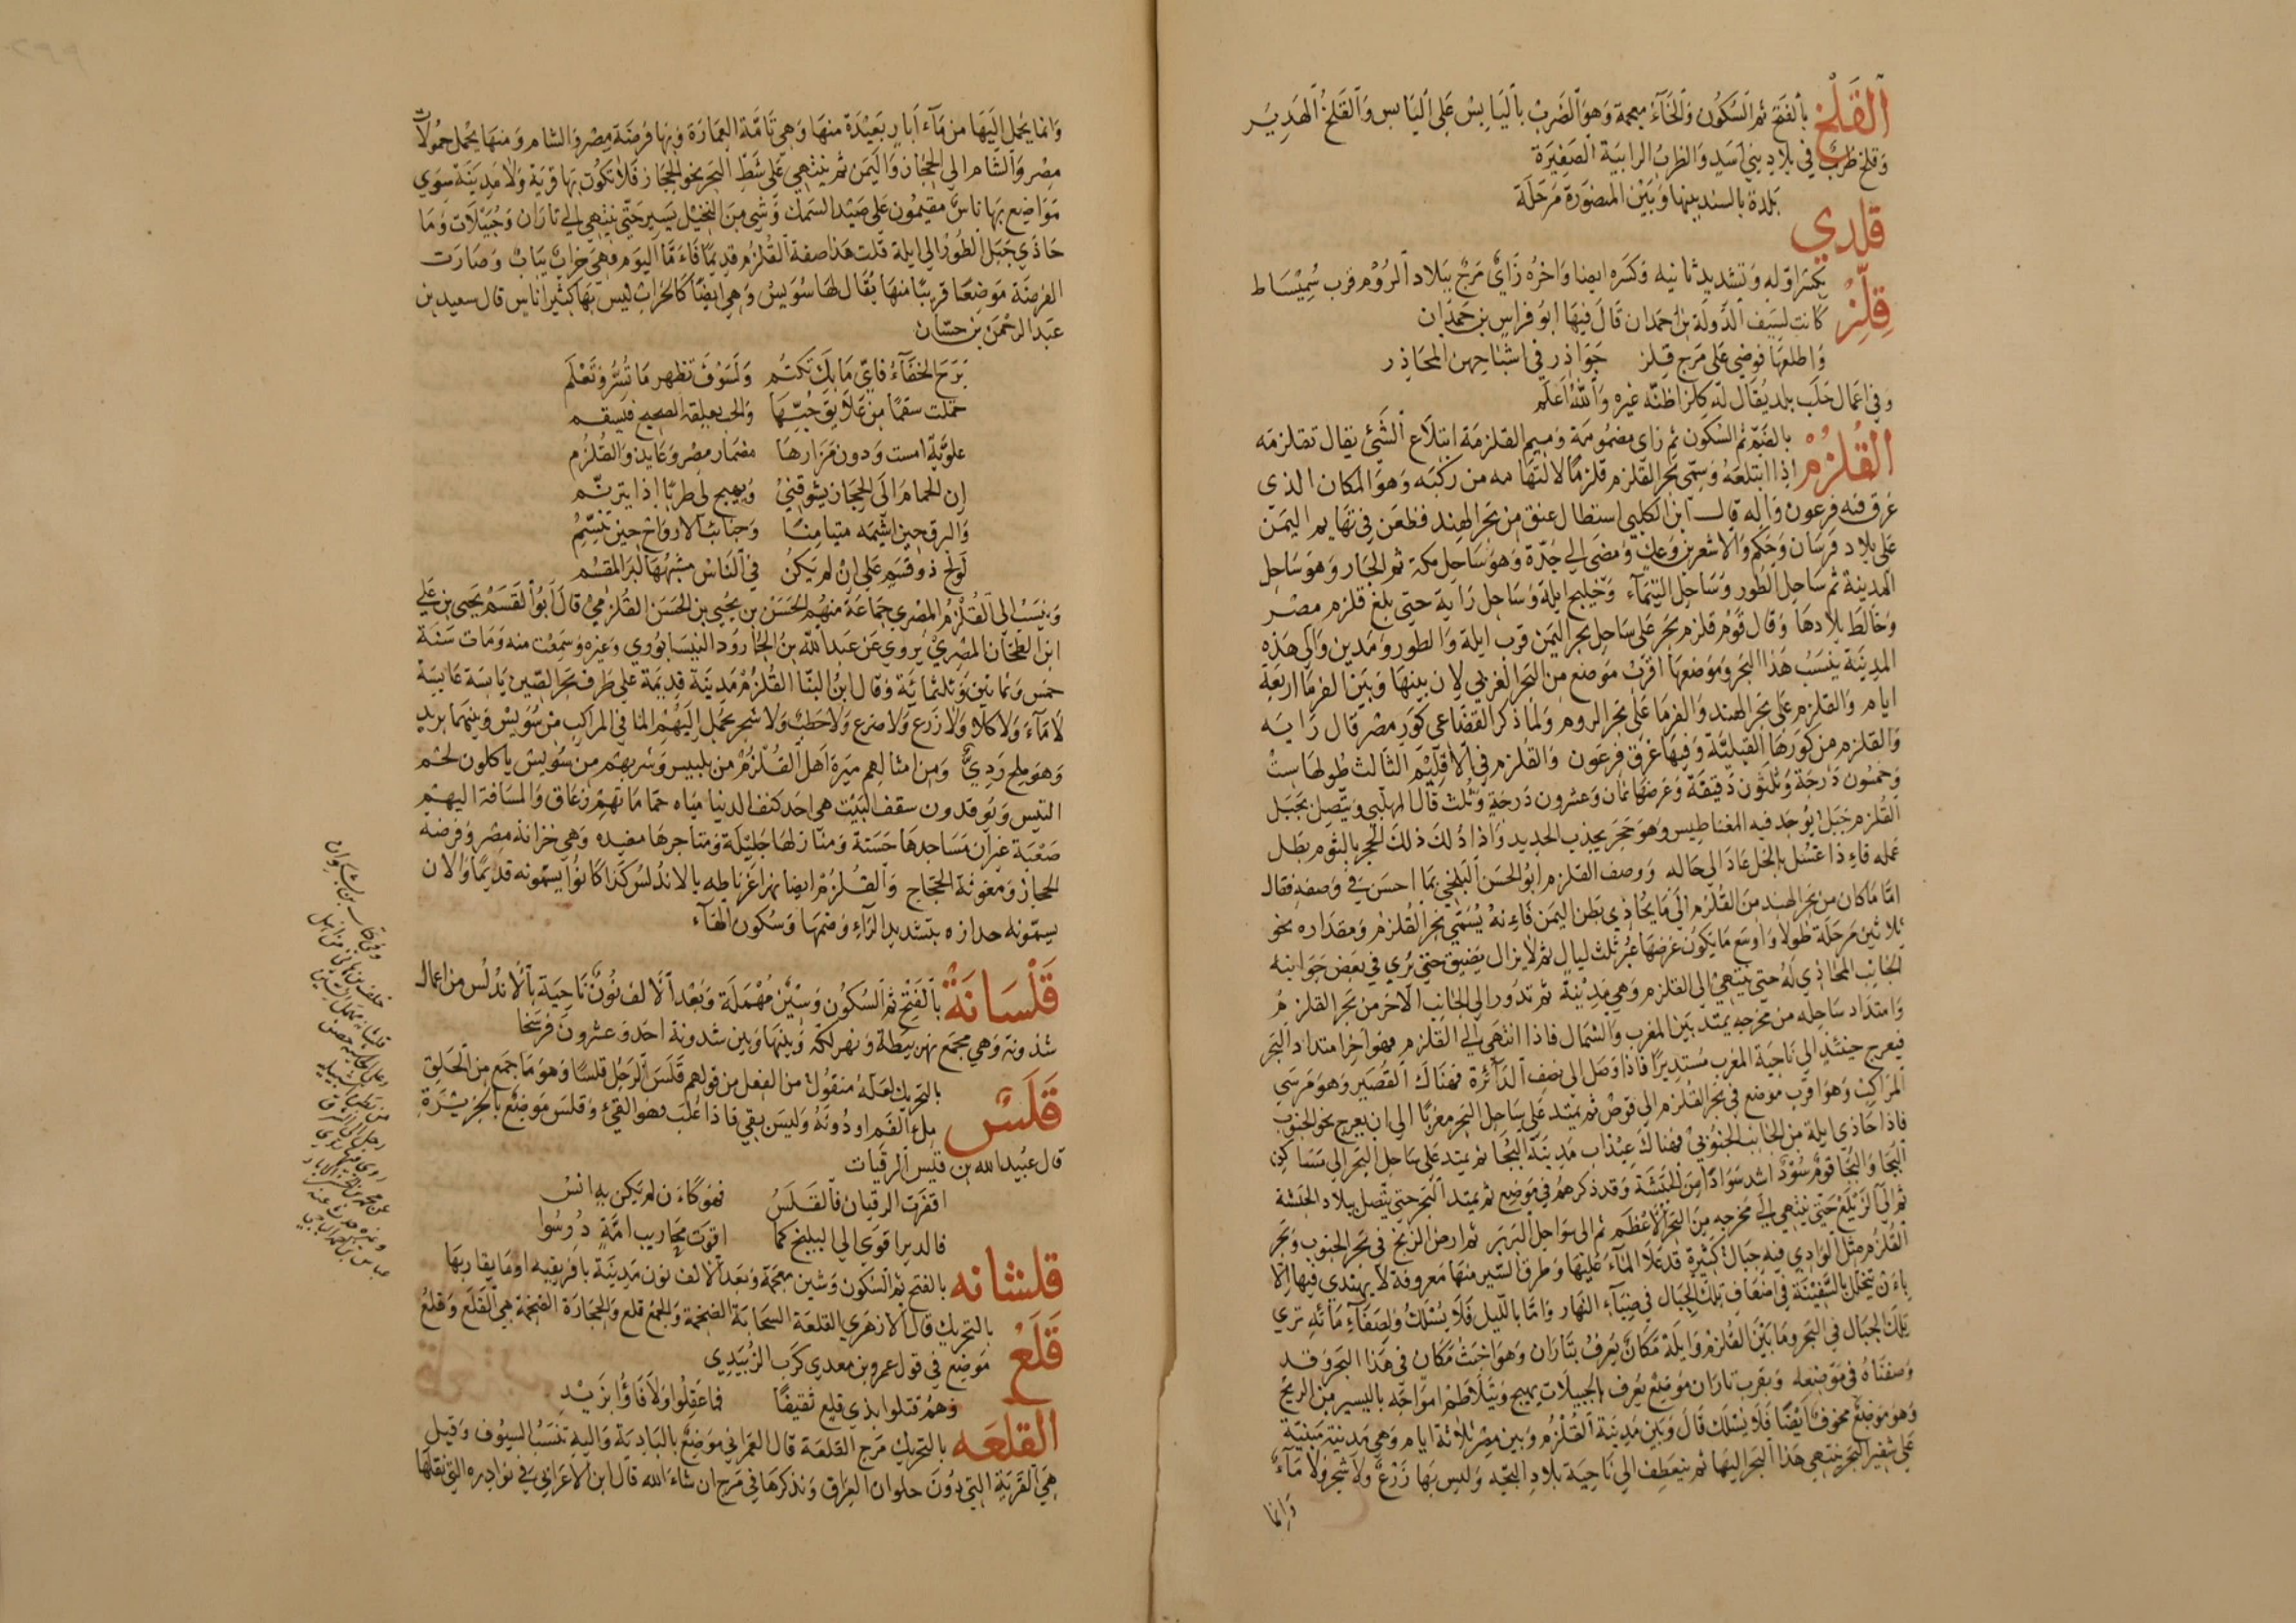 القلخ بالفتح ثم السكون والخاء معجمة وهو الضرب باليابس على اليابس والقلخ الهدير
وقلخ ظرب في بلاد بني اسد والظرب الرابية الصغيرة
قلدي بلدة بالسند بينها وبين المنصورة مرحلة
قلز بكسر اوله وتشديد ثانيه وكسره ايضا واخره زاى مرج ببلاد الروم قرب سميساط
كانت لسيف الدولة بن حمدان قال فيها ابو فراس بن حمدان
واطلعها فوضى على مرج قلز جواذر في اشباحهن المحاذر
وفي اعمال حلب بلد يقال له كلز اظنه غيره والله اعلم
القلزم بالضم ثم السكون ثم زاى مضمومة وميم القلزمة ابتلاع الشئ يقال تقلزمه
اذا ابتلعه وسمى بحر القلزم قلزما لالتهامه من ركبه وهو المكان الذى
غرق فيه فرعون واله قال ابن الكلبي استطال عنق من بحر الهند فطعن في تهايم اليمن
على بلاد فرسان وحكم والاشعرين وعك ومضى الي جدة وهو ساحل مكة ثم الجار وهو ساحل
المدينة ثم ساحل الطور وساحل التيماء وخليج ايلة وساحل راية حتى بلغ قلزم مصر
وخالط بلادها وقال قوم قلزم بحر على ساحل بحر اليمن قرب ايلة والطور ومدين والى هذه
المدينة ينسب هذا البحر وموضعها اقرب موضع من البحر الغربي لان بينها وبين الفرما اربعة
ايام والقلزم على بحر الهند والفرما على بحر الروم ولما ذكر القضاعي كور مصر قال راية
والقلزم من كورها القبلية وفيها غرق فرعون والقلزم في الاقليم الثالث طولها ست
وخمسون درجة وثلثون دقيقة وعرضها ثمان وعشرون درجة وثلث قال المهلبي ويتصل بجبل
القلزم جبل يوجد فيه المغناطيس وهو حجر يجذب الحديد واذا دلك ذلك الحجر بالثوم بطل
عمله فاءذا غسل بالخل عاد الى حاله ووصف القلزم ابو الحسن البلخي بما احسن في وصفه فقال
اما ما كان من بحر الهند من القلزم الى ما يحاذي بطن اليمن فاءنه يسمى بحر القلزم ومقداره نحو
ثلاثين مرحلة طولا واوسع ما يكون عرضها عبر ثلث ليال ثم لا يزال يضيق حتى يرى في بعض جوانبه
الجانب المحاذي له حتى ينتهى الى القلزم وهي مدينة ثم تدور الى الجانب الاخر من بحر القلزم
وامتداد ساحله من مخرجه يمتد بين المغرب والشمال فاذا انتهى الى القلزم فهو اخر امتداد البحر
فيعرج حينئذ الى ناحية المغرب مستديرا فاذا وصل الى نصف الدائرة فهناك القصير وهو مرسى
المراكب وهو اقرب موضع في بحر القلزم الى قوص ثم يمتد على ساحل البحر مغربا الى ان يعرج نحو الجنوب
فاذا حاذي ايلة من الجانب الجنوبي فهناك عيذاب مدينة البجا ثم يمتد على ساحل البحر الى مساكن
البجا والبجا قوم سود اشد سوادا من الحبشة وقد ذكرهم في موضع ثم يمتد البحر حتى يتصل ببلاد الحبشة
ثم الى الزيلع حتى ينتهي الى مخرجه من البحر الاعظم ثم الى سواحل البربر ثم ارض الزنج في بحر الجنوب وبحر
القلزم مثل الوادي فيه جبال كثيرة قد علا الماء عليها وطرق السير منها معروفة لا يهتدي فيها الا
باءن يتخلل بالسفينة في اضعاف تلك الجبال في ضياء النهار واما بالليل فلا يسلك ولصفاء مائه ترى
تلك الجبال في البحر وما بين القلزم وايلة مكان يعرف بتاران وهو اخبث مكان في هذا البحر وقد
وصفناه في موضعه وبقرب تاران موضع يعرف بالجبيلات يهيج ويتلاطم امواجه باليسير من الريح
وهو موضع مخوف ايضا فلا يسلك قال وبين مدينة القلزم وبين مصر ثلاثة ايام وهي مدينة مبنية
على شفير البحر ينتهي هذا البحر اليها ثم ينعطف الى ناحية بلاد البجه وليس بها زرع ولا شجر ولا ماء
وانما
وانما يحمل اليها من ماء ابار بعيدة منها وهي تامة العمارة وبها فرضة مصر والشام ومنها يحمل حمولات
مصر والشام الى الحجاز واليمن ثم ينتهي على شط البحر نحو الحجاز فلا تكون بها قرية ولا مدينة سوى
مواضع بها ناس مقيمون على صيد السمك وشي من النخيل يسير حتى ينتهي الى تاران وجبيلات وما
حاذي جبل الطور الى ايلة قلت هذا صفة القلزم قديما فاءما اليوم فهي خراب يباب وصارت
الفرضة موضعا قريبا منها يقال لها سويس وهي ايضا كالخراب ليس بها كثير اناس قال سعيد بن
عبد الرحمن بن حسان
برح الخفاء فاي ما بك تكتم ولسوف تظهر ما تسر وتعلم
حملت سقما من علايق حبها والحب يعلقه الصحيح فيسقم
علوية امست ودون مزارها مضمار مصر وعايد والقلزم
ان الحمام الى الحجاز يشوقني ويهيج لي طربا اذا يترنم
والبرق حين اشيمه متيامنا وجنائب الارواح حين تنسم
لو لح ذو قسم على ان لم يكن في الناس مشبهها لبر المقسم
وينسب الى القلزم المصري جماعة منهم الحسن بن يحيي بن الحسن القلزمي قال ابو القسم يحيى بن علي
ابن الطحان المصري يروي عن عبد الله بن الجارود النيسابوري وغيره وسمعت منه ومات سنة
خمس وثمانين وثلثمائة وقال ابن البنا القلزم مدينة قديمة على طرف بحر الصين يابسة عابسة
لا ماء ولا كلا ولا زرع ولا ضرع ولا حطب ولا شجر يحمل اليهم الما في المراكب من سويس وبينهما بريد
وهو ملح ردي ومن امثالهم ميرة اهل القلزم من بلبيس وشربهم من سويس ياكلون لحم
التيس ويوقدون سقف البيت هي احد كنف الدنيا مياه حماماتهم زعاق والمسافة اليهم
صعبة غير ان مساجدها حسنة ومنازلها جليلة ومتاجرها مفيده وهي خزانة مصر وفرضة
الحجاز ومغوثة الحجاج والقلزم ايضا نهر غرناطه بالاندلس كذا كانوا يسمونه قديما والان
يسمونه حدازه بتشديد الراء وضمها وسكون الهاء
قلسانة بالفتح ثم السكون وسين مهملة وبعد الالف نون ناحية بالاندلس من اعمال
شذونة وهي مجمع نهر بيطة ونهر لكه وبينها وبين شدونة احد وعشرون فرسخا
قلس بالتحريك لعله منقول من الفعل من قولهم قلس الرجل قلسا وهو ما جمع من الحلق
ملء الفم او دونه وليس بقي فاذا غلب فهو القيء وقلس موضع بالجزيرة
قال عبيد الله بن قيس الرقيات
اقفرت الرقيان فالقلس فهو كاءن لم يكن به انس
فالدير اقوى الى البليخ كما اقوت محاريب امة درسوا
قلشانه بالفتح ثم السكون وشين معجمة وبعد الالف نون مدينة بافريقيه او ما يقاربها
قلع بالتحريك قال الازهري القلعة السحابة الضخمة والجمع قلع والحجارة الضخمة هي القلع وقلع
موضع في قول عمرو بن معدي كرب الزبيدي
وهم قتلوا بذي قلع ثقيفا فما عقلوا ولا فاؤا بزيد
القلعه بالتحريك مرج القلعة قال العمراني موضع بالبادية واليه تنسب السيوف وقيل
هي القرية التي دون حلوان العراق ونذكرها في مرج ان شاء الله قال ابن الاعرابي في نوادره التي نقلها